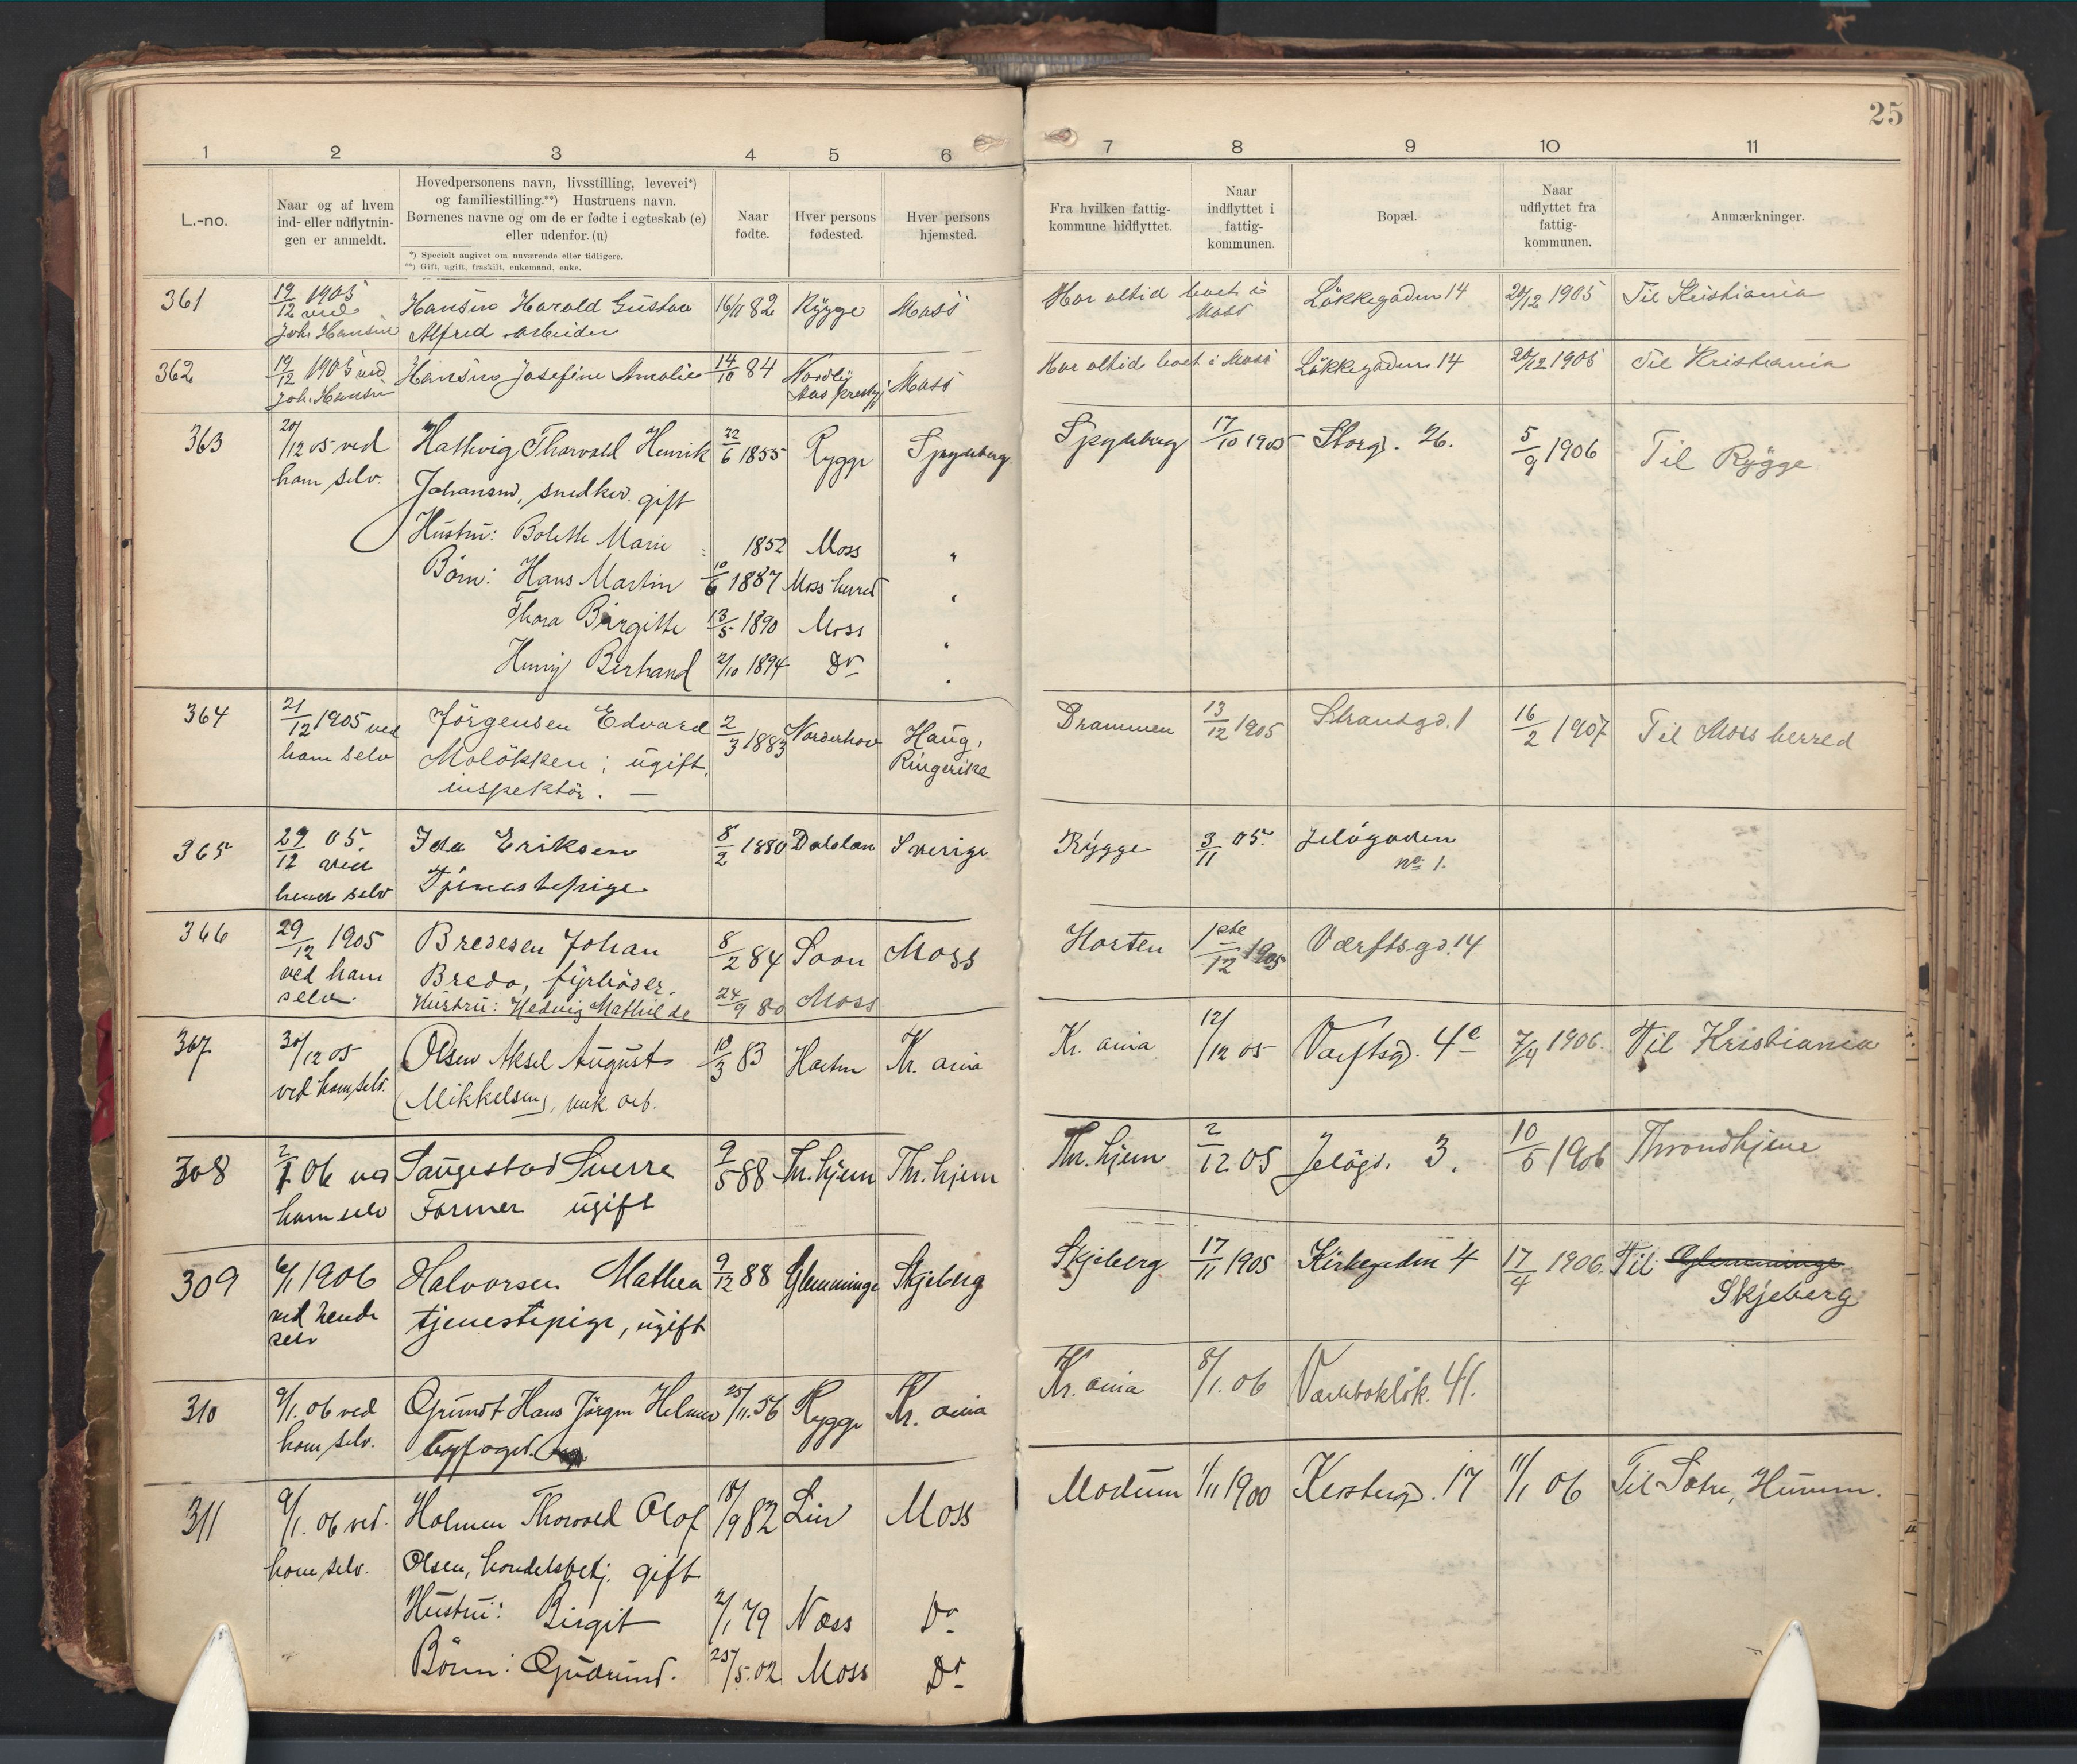 25
1 2 3 4 5 6 7 8 9 10 11
L.-no.
Naar og af hvem
ind- eller udflytnin-
gen er anmeldt.
Hovedpersonens navn, livsstilling, levevei*)
og familiestilling.**) Hustruens navn.
Børnenes navne og om de er fødte i egteskab (e)
eller udenfor. (u)
*) Specielt angivet om nuværende eller tidligere.
**) Gift, ugift, fraskilt, enkemand, enke.
Naar
fødte.
Hver persons
fødested.
Hver persons
hjemsted.
Fra hvilken fattig-
kommune hidflyttet.
Naar
indflyttet i
fattig-
kommunen.
Bopæl.
Naar
udflyttet fra
fattig-
kommunen.
Anmærkninger.
361 19/12 1905 Hansen Harald Gustav 16/11 82 Rygge Moss Har altid boet i Løkkegaden 14 20/12 1905 Til Kristiania
ved Moss
Joh. Hansen Alfred arbeider
362 19/12 1905 ved Hansen Josefine Amalie 14/10 84 Nordby Moss Har altid boet i Moss Løkkegaden 14 20/12 1905 Til Kristiania
Joh. Hansen Aas
363 20/12 05 ved Hallvig Thorvald Henrik 22/6 1855 Rygge Spydeberg Spydeberg 17/10 1905 Storg. 26. 5/9 1906 Til Rygge
ham selv. Johansen, snedker. gift
Hustru: Bolette Marie 1852 Moss "
Børn: Hans Martin 10/6 1887 Moss herred "
Thora Birgitte 13/5 1890 Moss "
Henry Berhand 2/10 1894 Do "
364 21/12 1905 ved Jörgensen Edvard 2/3 1883 Norderhov Haug, Drammen 13/12 1905 Strandgd. 1 16/2 1907 Til Moss herred
ham selv Moløkken; ugift, Ringerike
inspektör. —
365 29/12 05. Ida Eriksen 8/2 1880 Dalslan Sverige Rygge 3/11 05. Jeløgaden
ved no 1.
hende selv Tjenestepige
366 29/12 1905 Bredesen Johan 8/2 84 Soon Moss Horten 1ste/12 1905 Værftsgd. 14
ved ham Bredo, fyrbøder.
selv. Hustru: Hedvig Mathilde 24/9 80 Moss
307 30/12 05 Olsen Aksel August 10/3 83 Horten Kr. ania Kr. ania 12/12 05 Værftsgd. 4c 7/4 1906. Til Kristiania
ved ham selv. (Mikkelsen), mek. arb.
308 2/1 06 ved Saugestad Sverre 9/5 88 Th.hjem Th.hjem Th.hjem 2/12 05 Jeløgd. 3. 10/5 1906 Throndhjem
ham selv Former ugift
309 6/1 1906 Halvorsen Mathea 9/12 88 Glemminge Skjeberg Skjeberg 17/11 1905 Kirkegaden 4 17/4 1906. Til Glemminge
ved hende Skjeberg
selv tjenestepige, ugift
310 9/1. 06 ved Grundt Hans Jörgen Helmer 25/11. 56 Rygge Kr. ania Kr. ania 8/1. 06 41.
ham selv. byfoged.
311 9/1. 06 ved. Holmen Thorvald Olof 18/9 82 Lier Moss Modum 1/11 1900 Kirkebergd. 17 11/1 06 Til Sætre, Hurum.
ham selv. Olsen, handelsbetj. gift
Hustru: Birgit 2/1 79 Næss Do
Børn: Gudrund. 25/5. 02 Moss Do